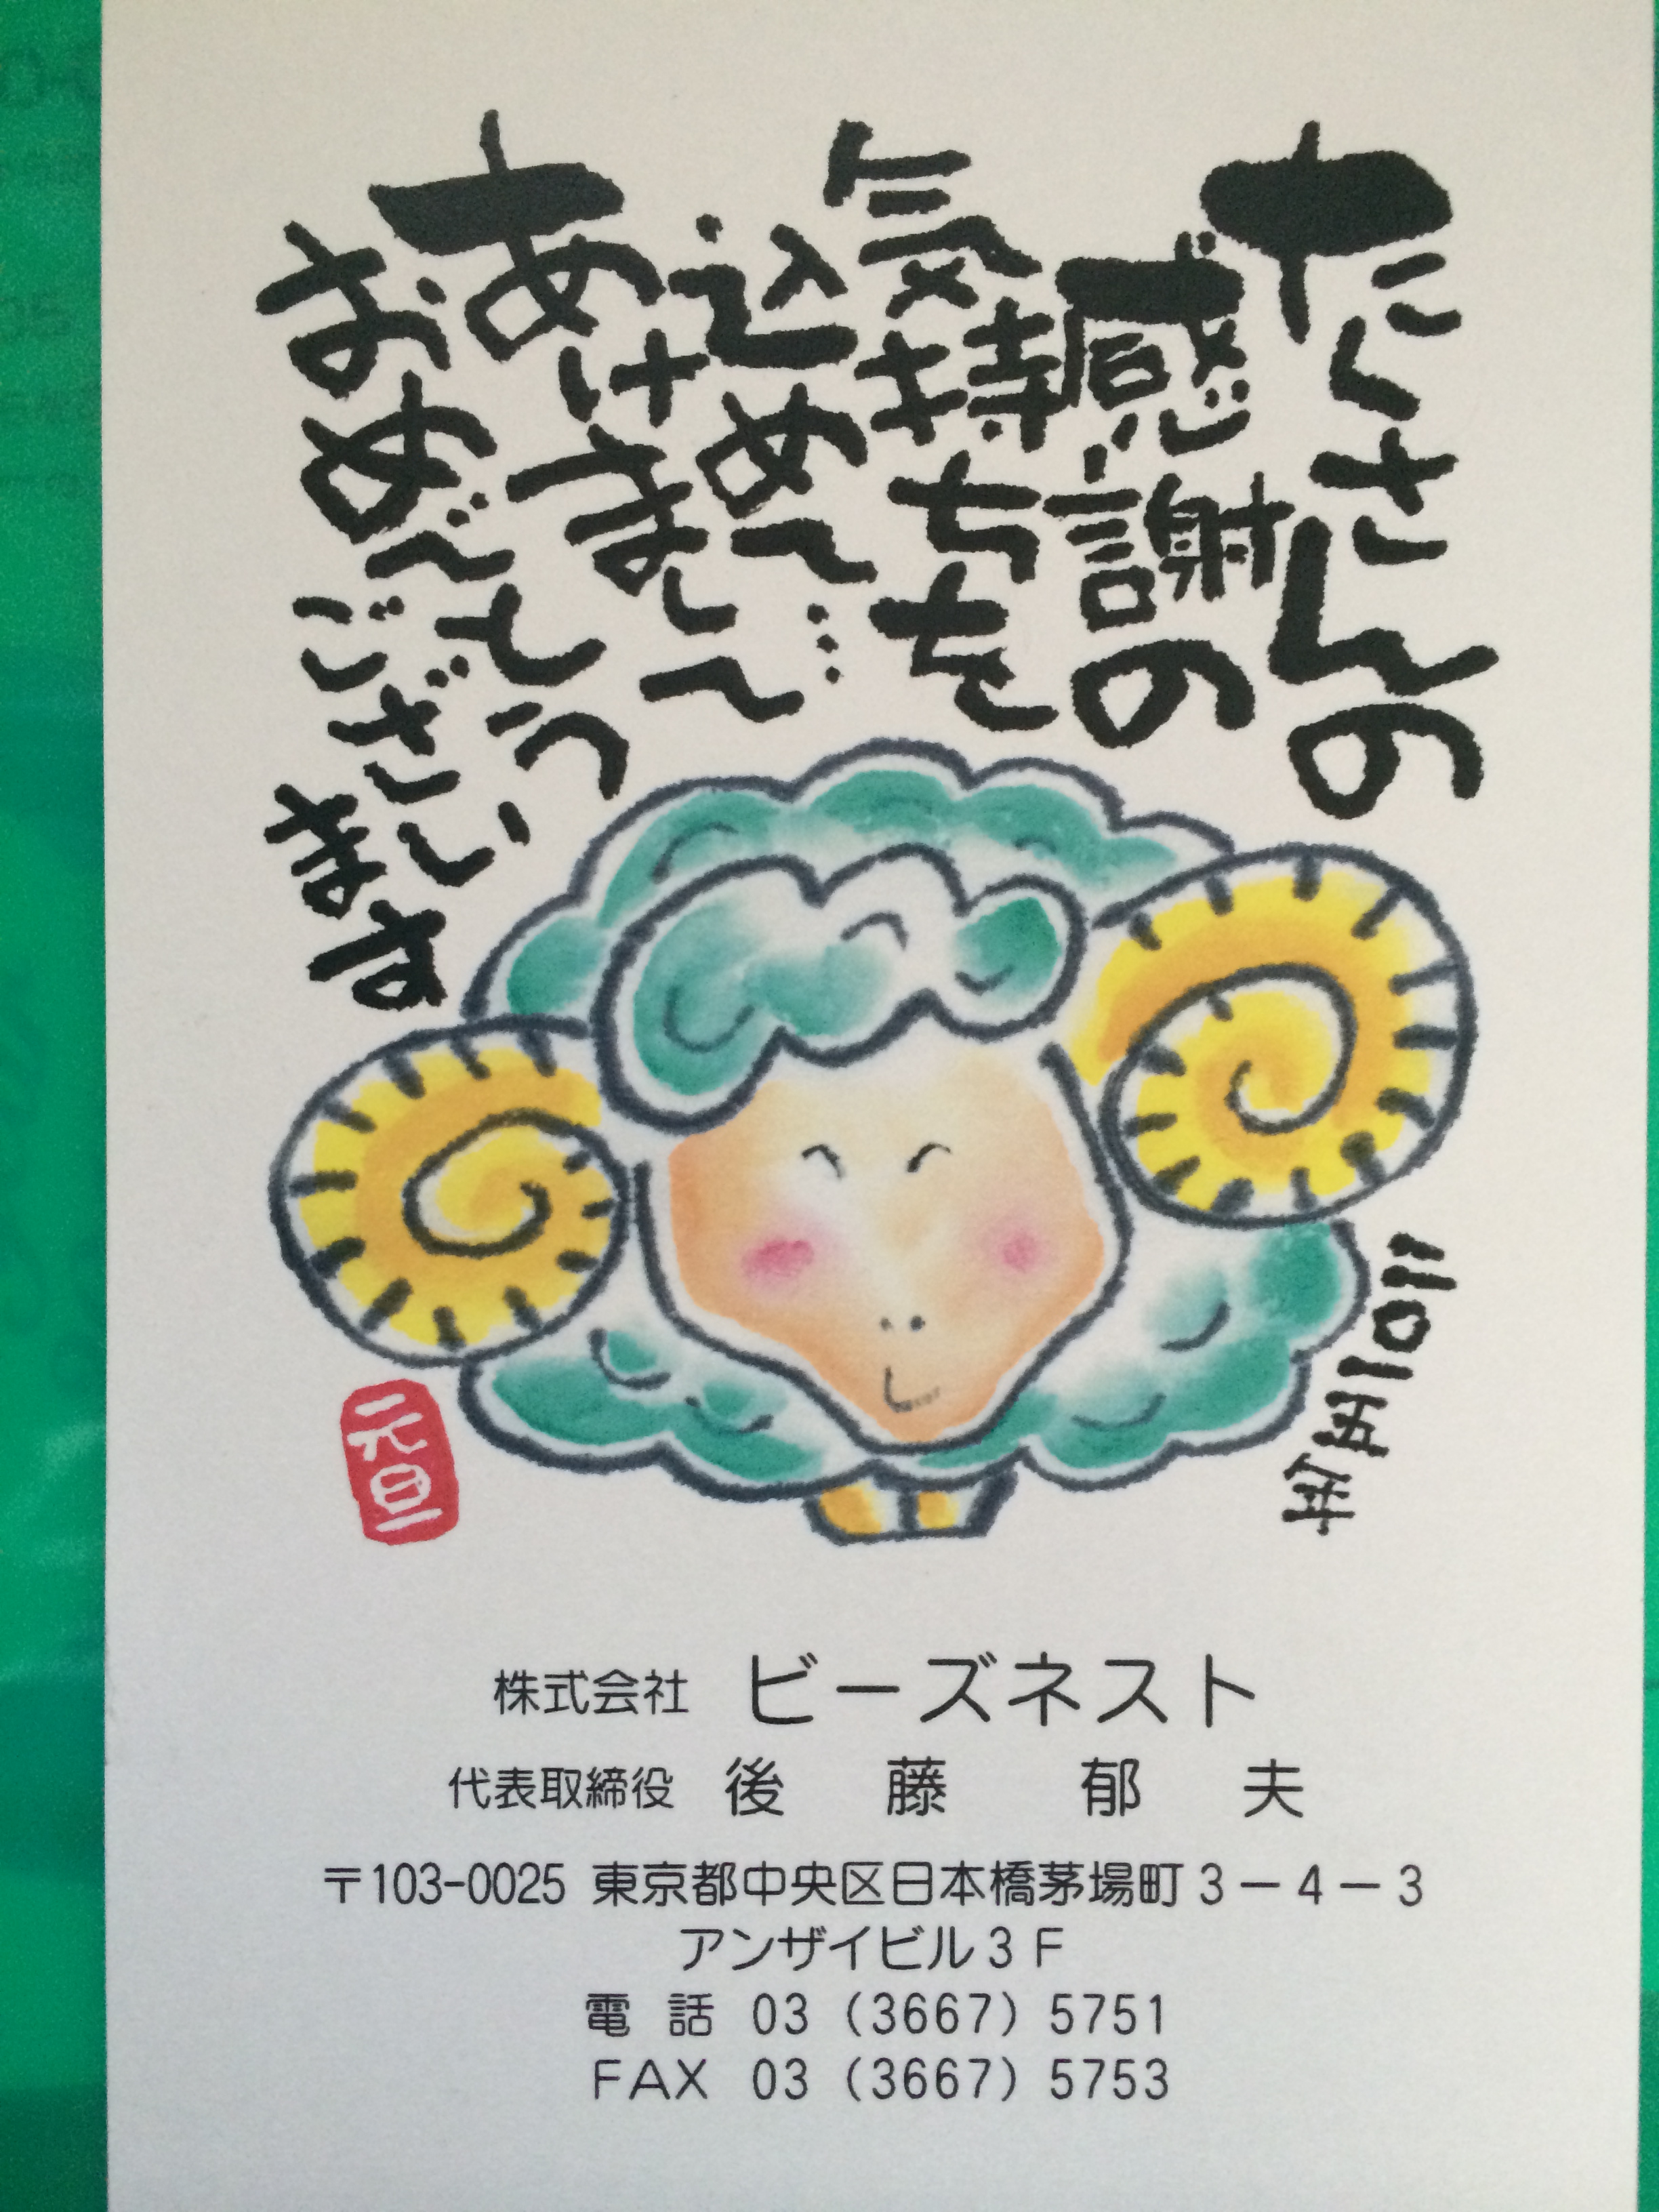 たくさんの
感謝の
気持ちを
込めて…
あけまして
おめでとう
ございます
二〇一五年
元旦
株式会社 ビーズネスト
代表取締役 後藤郁夫
〒103-0025 東京都中央区日本橋茅場町3－4－3
アンザイビル3F
電話 03（3667）5751
FAX 03（3667）5753